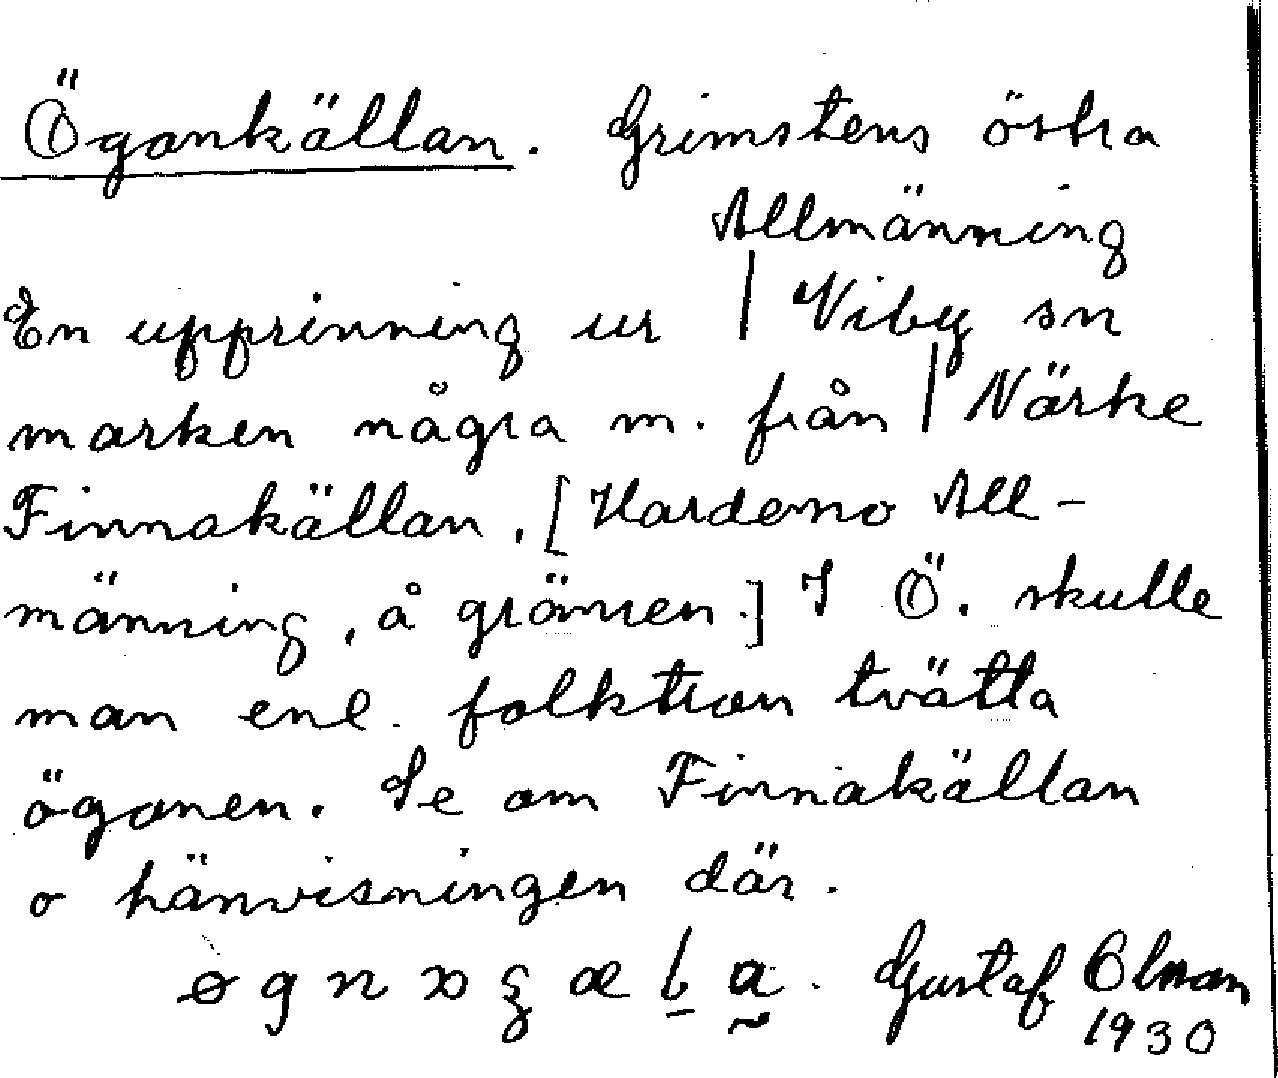 Ögonkällan. Grimstens östra
Allmänning
En upprinning ur | Viby sn
marken några m. från | Närke
Finnakällan. [Hardemo All-
männing, å gränsen.] I Ö. skulle
man enl. folktron tvätta
ögonen. Se om Finnakällan
o hänvisningen där.
Gustaf Olman
1930